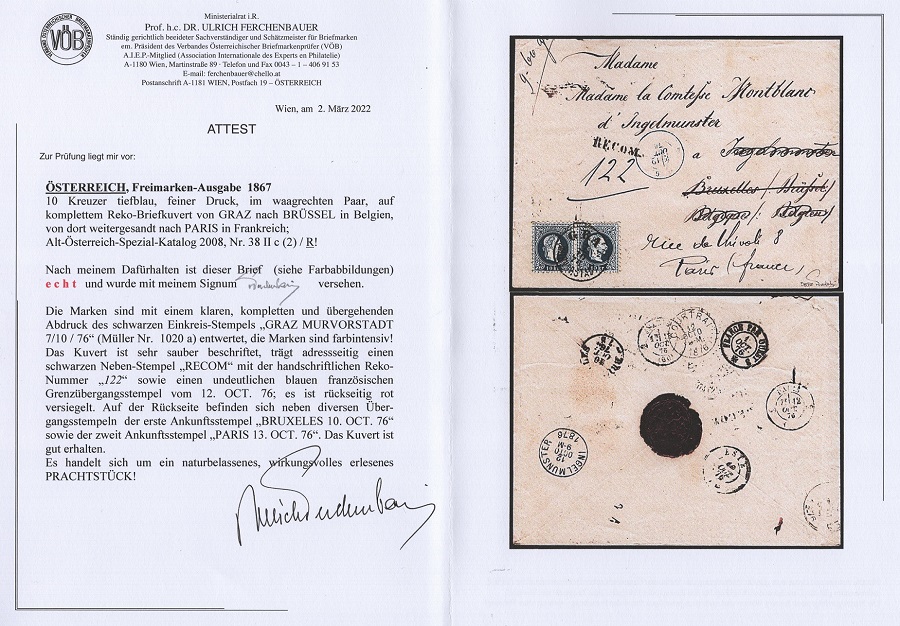 VERBAND ÖSTERREICHISCHER BRIEFMARKENPRÜFER
VÖB
Ministerialrat i.R.
Prof. h.c. DR. ULRICH FERCHENBAUER
Ständig gerichtlich beeideter Sachverständiger und Schätzmeister für Briefmarken
em. Präsident des Verbandes Österreichischer Briefmarkenprüfer (VÖB)
A.I.E.P.-Mitglied (Association Internationale des Experts en Philatelie)
A-1180 Wien, Martinstraße 89 · Telefon und Fax 0043 – 1 – 406 91 53
E-mail: ferchenbauer@chello.at
Postanschrift A-1181 WIEN, Postfach 19 – ÖSTERREICH
Wien, am 2. März 2022
ATTEST
Zur Prüfung liegt mir vor:
ÖSTERREICH, Freimarken-Ausgabe 1867
10 Kreuzer tiefblau, feiner Druck, im waagrechten Paar, auf
komplettem Reko-Briefkuvert von GRAZ nach BRÜSSEL in Belgien,
von dort weitergesandt nach PARIS in Frankreich;
Alt-Österreich-Spezial-Katalog 2008, Nr. 38 II c (2) / R!
Nach meinem Dafürhalten ist dieser Brief (siehe Farbabbildungen)
echt und wurde mit meinem Signum Ferchenbauer versehen.
Die Marken sind mit einem klaren, kompletten und übergehenden
Abdruck des schwarzen Einkreis-Stempels „GRAZ MURVORSTADT
7/10 / 76“ (Müller Nr. 1020 a) entwertet, die Marken sind farbintensiv!
Das Kuvert ist sehr sauber beschriftet, trägt adressseitig einen
schwarzen Neben-Stempel „RECOM“ mit der handschriftlichen Reko-
Nummer „122“ sowie einen undeutlichen blauen französischen
Grenzübergangsstempel vom 12. OCT. 76; es ist rückseitig rot
versiegelt. Auf der Rückseite befinden sich neben diversen Über-
gangsstempeln der erste Ankunftsstempel „BRUXELES 10. OCT. 76“
sowie der zweit Ankunftsstempel „PARIS 13. OCT. 76“. Das Kuvert ist
gut erhalten.
Es handelt sich um ein naturbelassenes, wirkungsvolles erlesenes
PRACHTSTÜCK!
Madame
Madame la Comtesse Montblanc
d'Ingelmunster
RECOM.
a Ingelmunster
122
Bruxelles / Brüssel /
Belgique /: Belgien /
rue de Rivoli 8
Paris (france)
COURTRAI
12
OCTO
1876
INGELMUNSTER
12
OCTO
9-M
1876